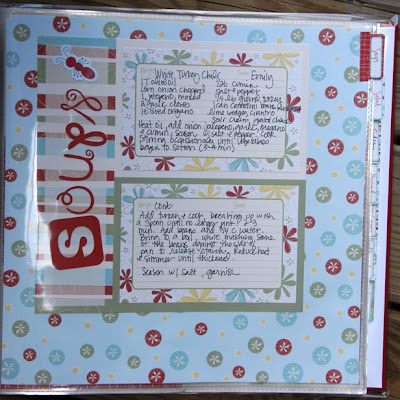 soups
White Turkey Chili Emily
1T olive oil
1sm onion chopped
1 jalapeno, minced
2 garlic cloves
1t dried oregano
1/2 t cumin
salt + pepper
3/4 lb ground turkey
1 can cannellini beans
lime wedges, cilantro
sour cream,
Heat oil, add onion, jalapeno, garlic, oregano
+ cumin, season w/ salt + pepper. Cook
stirring occasionally until vegetables
begin to soften (3-4 min)
cont.
Add turkey + cook, breaking up with
a spoon until no longer pink ~ 2-3
min. Add beans and 3/4 c water.
Bring to a boil, while mashing some
of the beans against the side of
pan to release starch. Reduce heat
+ simmer until thickened.
Season w/ salt, garnish